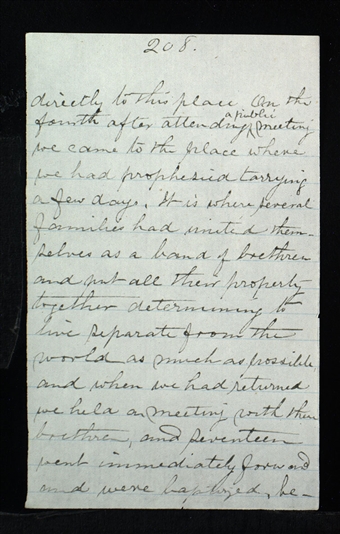 208.
directly to this place. On the
fourth after attending a public meeting
we came to the place where
we had prophesied tarrying
a few days. It is where several
families had united them-
selves as a band of brethren
and put all their property
together determining to
live separate from the
world as much as possible,
and when we had returned
we held a meeting with these
brethren, and seventeen
went immediately forward
and were baptized, be-